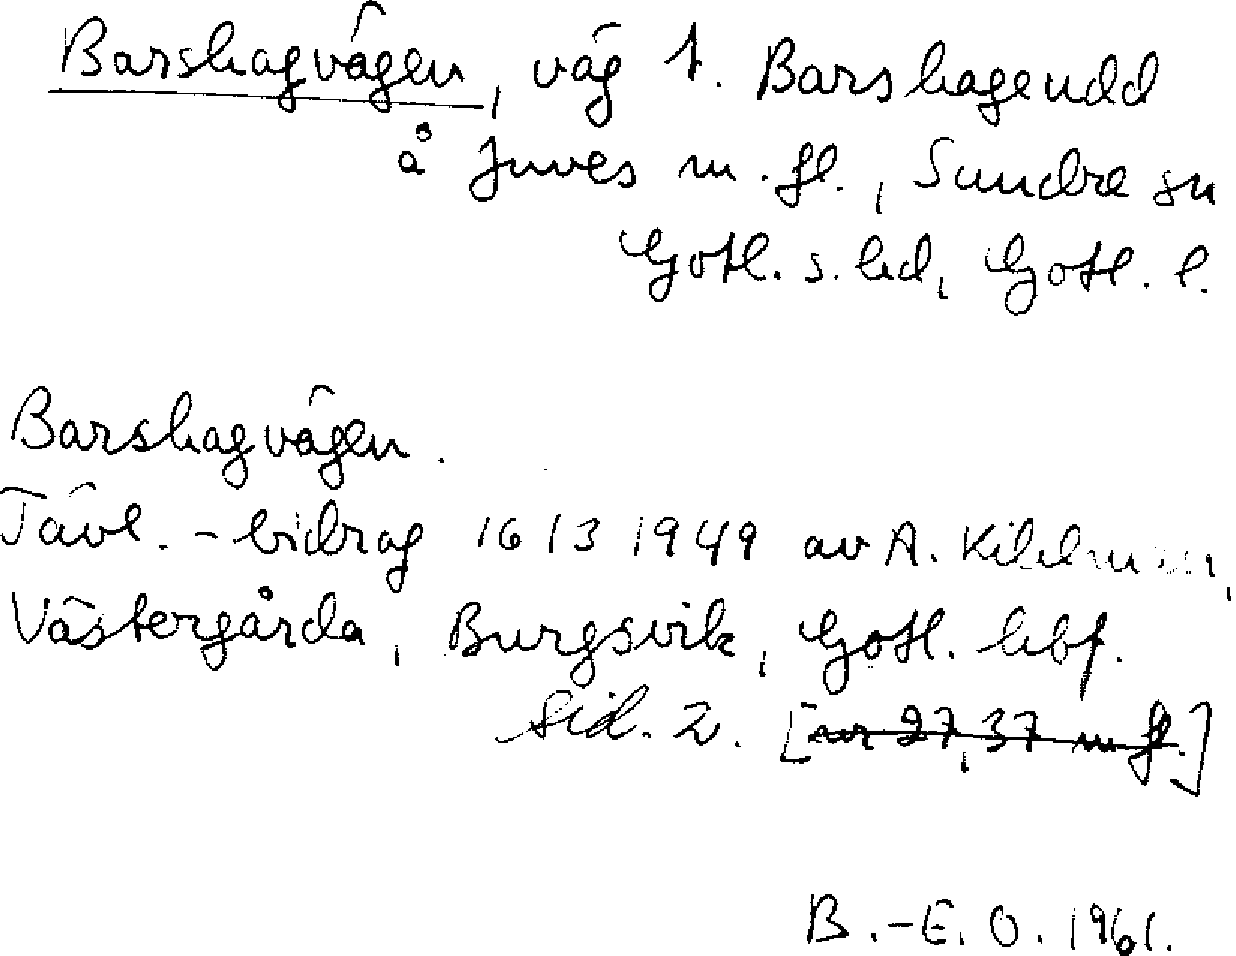 Barshagvägen, väg t. Barshageudd
å Juves m. fl., Sundre sn
Gotl. s. hd, Gotl. l.
Barshagvägen.
Tävl.-bidrag 16/3 1949 av A.
Västergårda, Burgsvik, Gotl. hbf.
Sid. 2. [nr 27, 37 m fl.]
B.-E. O. 1961.